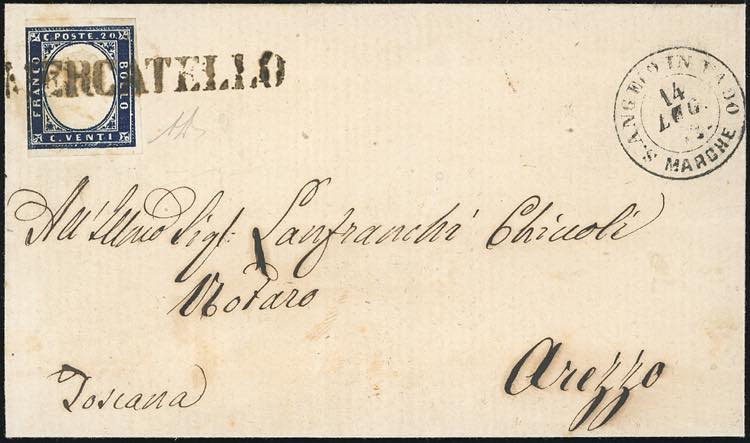 C. POSTE. 20
FRANCO
BOLLO
C. VENTI
MERCATELLO
S. ANGELO IN VADO
14
LUG.
MARCHE
All'Illmo Sigr. Lanfranchi Chiccoli
Notaro
Arezzo
Toscana